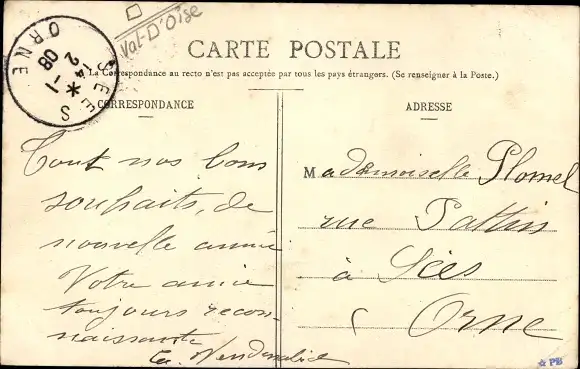 Val-D'Oise
SEES
ORNE
2 - 1
08
CARTE POSTALE
La Correspondance au recto n'est pas acceptée par tous les pays étrangers. (Se renseigner à la Poste.)
CORRESPONDANCE
Tout nos bons
souhaits, de
nouvelle année
Votre amie
toujours recon-
naissante
ADRESSE
Mademoiselle Plomel
rue
à Sées
Orne
PB